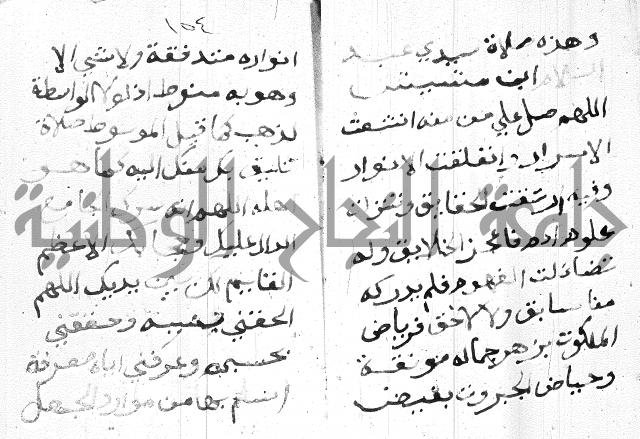 وهذه صلاة سيدي عبد
السلام ابن مشيش
اللهم صل على من منه انشقت
الاسرار وانفلقت الانوار
وفيه ارتقت الحقايق وتنزلت
علوم ادم فاعجز الخلايق وله
تضاءلت الفهوم فلم يدركه
منا سابق ولا لاحق فرياض
الملكوت بزهر جماله مونقة
وحياض الجبروت بفيض
١٥٤
انواره متدفقة ولا شي الا
وهو به منوط اذ لولا الواسطة
لذهب كما قيل الموسوط صلاة
تليق بك منك اليه كما هو
اهله اللهم انه سرك الجامع
الدال عليك وحجابك الاعظم
القايم لك بين يديك اللهم
الحقني بنسبه وحققني
بحسبه وعرفني اياه معرفة
اسلم بها من موارد الجهل
جامعة النجاح الوطنية